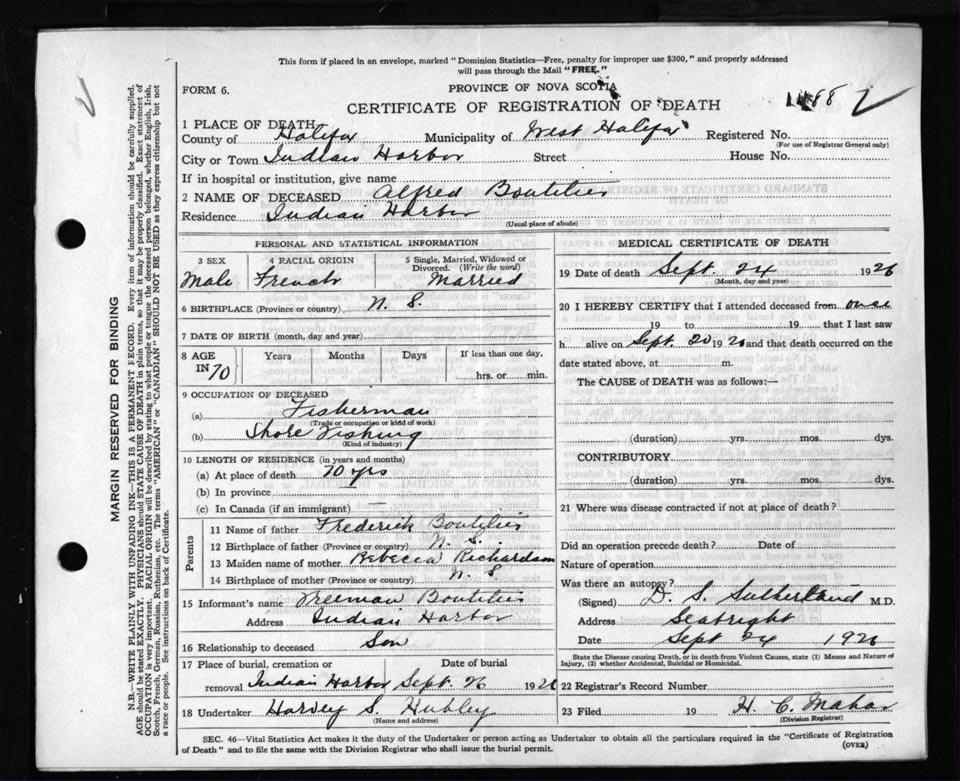 This form if placed in an envelope, marked "Dominion Statistics—Free, penalty for improper use $300," and properly addressed
will pass through the Mail "FREE."
FORM 6.
PROVINCE OF NOVA SCOTIA
CERTIFICATE OF REGISTRATION OF DEATH
1488
1 PLACE OF DEATH
County of Halifax Municipality of West Halifax Registered No.
(For use of Registrar General only)
City or Town Indian Harbor Street House No.
If in hospital or institution, give name
2 NAME OF DECEASED Alfred Boutilier
Residence Indian Harbor
(Usual place of abode)
PERSONAL AND STATISTICAL INFORMATION
3 SEX 4 RACIAL ORIGIN 5 Single, Married, Widowed or
Divorced. (Write the word)
Male French Married
6 BIRTHPLACE (Province or country) N. S.
7 DATE OF BIRTH (month, day and year)
8 AGE Years Months Days If less than one day,
IN 70 hrs. or min.
9 OCCUPATION OF DECEASED
(a) Fisherman
(Trade or occupation or kind of work)
(b) Shore Fishing
(Kind of industry)
10 LENGTH OF RESIDENCE (in years and months)
(a) At place of death 70 yrs
(b) In province
(c) In Canada (if an immigrant)
Parents
11 Name of father Frederick Boutilier
12 Birthplace of father (Province or country) N. S.
13 Maiden name of mother Rebecca Richardson
14 Birthplace of mother (Province or country) N. S.
15 Informant's name Freeman Boutilier
Address Indian Harbor
16 Relationship to deceased Son
17 Place of burial, cremation or Date of burial
removal Indian Harbor Sept. 26 1926
18 Undertaker Harvey S. Hubley
(Name and address)
MEDICAL CERTIFICATE OF DEATH
19 Date of death Sept. 24 1926
(Month, day and year)
20 I HEREBY CERTIFY that I attended deceased from once
19 to 19 that I last saw
h alive on Sept. 20 1926 and that death occurred on the
date stated above, at m.
The CAUSE of DEATH was as follows:—
(duration) yrs. mos. dys.
CONTRIBUTORY
(duration) yrs. mos. dys.
21 Where was disease contracted if not at place of death?
Did an operation precede death? Date of
Nature of operation
Was there an autopsy?
(Signed) D. S. Sutherland M.D.
Address Seabright
Date Sept 24 1926
State the Disease causing Death, or in death from Violent Causes, state (1) Means and Nature of
Injury, (2) whether Accidental, Suicidal or Homicidal.
22 Registrar's Record Number
23 Filed 19 H. C. Mahar
(Division Registrar)
SEC. 46—Vital Statistics Act makes it the duty of the Undertaker or person acting as Undertaker to obtain all the particulars required in the "Certificate of Registration
of Death" and to file the same with the Division Registrar who shall issue the burial permit.
(OVER)
MARGIN RESERVED FOR BINDING
N.B.—WRITE PLAINLY WITH UNFADING INK—THIS IS A PERMANENT RECORD. Every item of information should be carefully supplied.
AGE should be stated EXACTLY. PHYSICIANS should STATE CAUSE OF DEATH in plain terms, so that it may be properly classified. Exact statement of
OCCUPATION is very important. RACIAL ORIGIN will be described by stating to what people or tongue the deceased person belonged, whether English, Irish,
Scotch, French, German, Russian, Ruthenian, etc. The terms "AMERICAN" or "CANADIAN" SHOULD NOT BE USED as they express citizenship but not
a race or people. See instructions on back of Certificate.